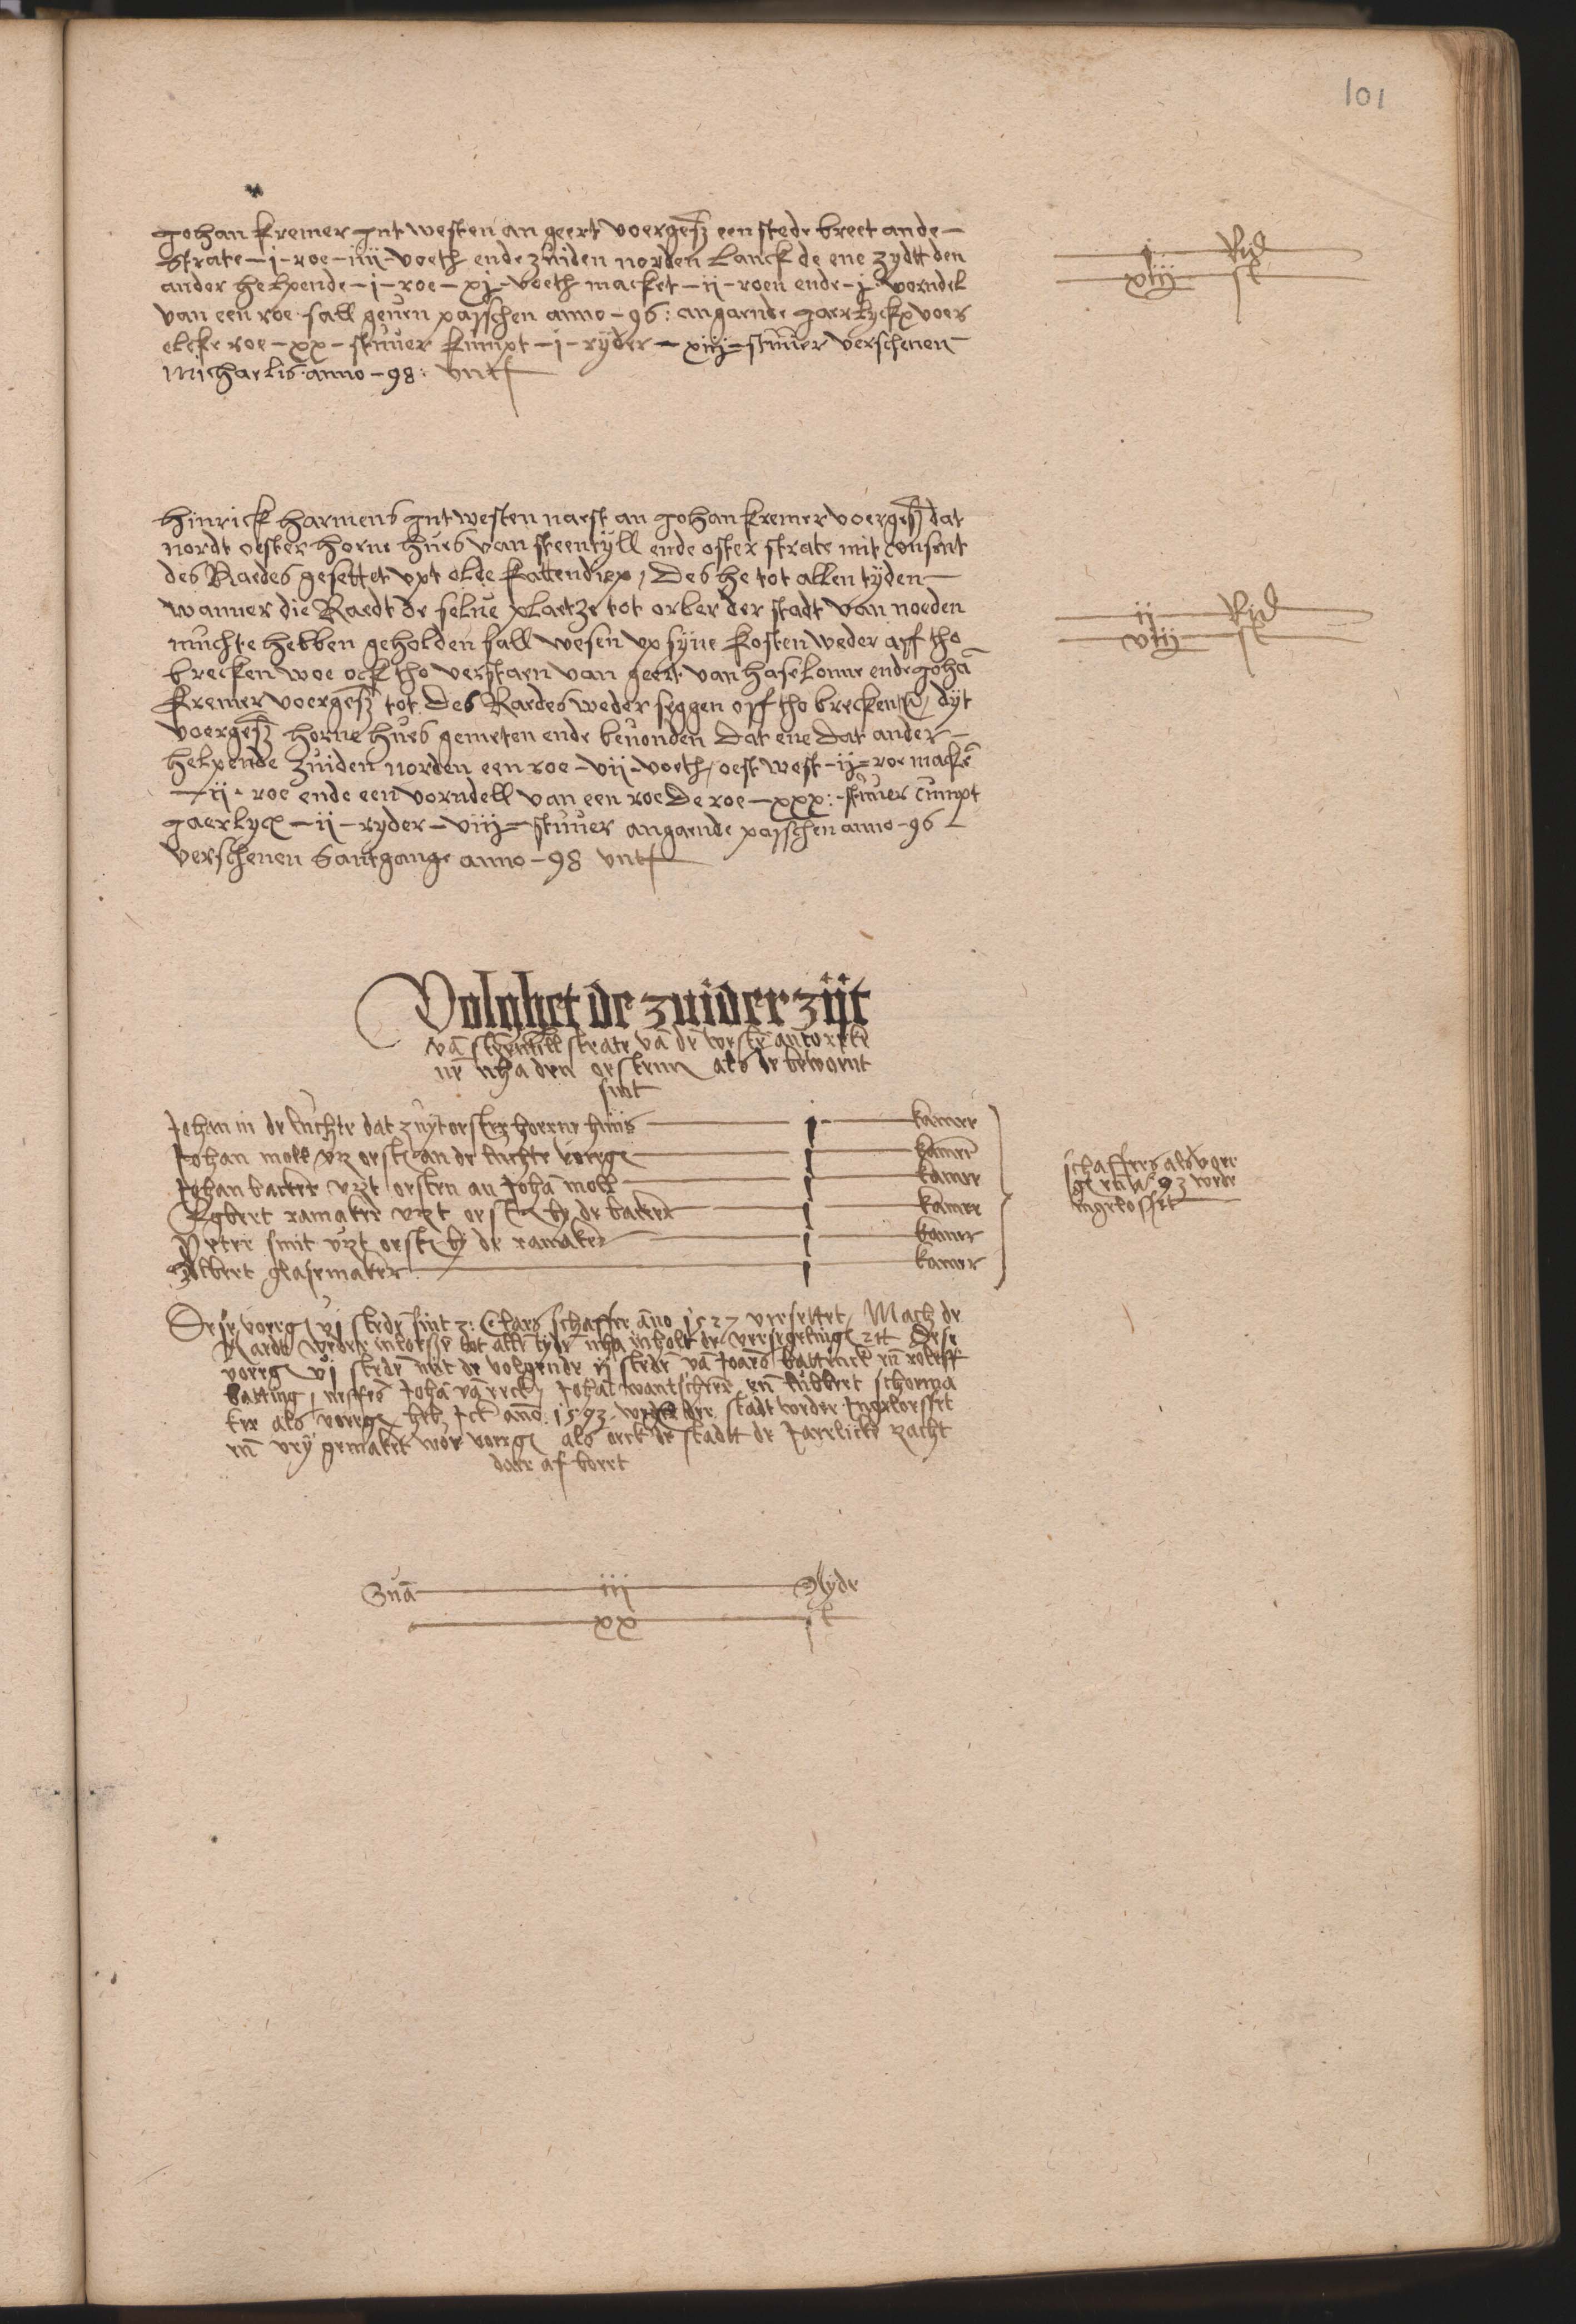 101
Johan Kremer int westen an geert voergeß een stede breet ande
Strate - i - roe - iiii - voeth ende zuiden norden lanck de ene zydtt den
ander helpende - i - roe - xi - voeth macket - ii - roen ende - i - vorndel
van een roe sall geuen paisschen anno - 96 : angaende Jaerlyckx voer
elcke roe - xx - stuuer kumpt - i - ryder - xiij - stuuer verschenen
Michaelis anno - 98 : vntf
i Rid
xiij st
Hinrick Harmens int westen naest an Johan Kremer voergeß dat
nordt oester horne hues van steentyll ende oster strate mit consent
des Raedes gesettet vpt olde Kattendiep, Des he tot allen tyden
wanner die Raedt de selue plaetze tot orber der stadt van noeden
muchte hebben geholden sall wesen vp syne kosten weder aff tho
brecken woe ock tho verstaen van geert van haselonne ende Johā
Kremer voergeß tot des Raedes weder seggen off tho brecken dyt
voergeß horne hues gemeten ende beuonden dat ene dat ander
helpende zuiden norden een roe - vii - voeth, oest west - ij - roe mackē
- ii - roe ende een vorndell van een roe De roe - xxx : - stuuer cumpt
Jaerlycx - ii - ryder - viij - stuuer angaende paisschen anno - 96
verschenen Santgange anno - 98 vntf
ii Rid
viij st
Volghet de zuider zijt
vā steentill strate vā de westē an to reke
ne nha den oesten als de bewoent
sint
Johan in de luchte dat zuyt oester hoerne huiis i kamer
Johan moll vp oestē an de luchte voerg i kamer
Johan backer vpt oesten an Johā moll i kamer
Egbert ramaker vpt oestē by de backer i kamer
Peter smit vpt oestē by de ramaker i kamer
Albert glasemaker i kamer
schaffers als voer
g en ao 93 weder
ingelosset
Dese voerg vi stedē sint z: Claes schaffer āno 1527 versettet, Mach de
Raedt weder inlossē tot allē tydē nha inholt der versegelinge Dese
voerg vi stedē mit de volgende ij stedē vā Joārs battinck en roleff
batting, Johā vā eeck, Johā wantscherer en lubbert schoema
ker als voerg heb Ick anō 1593 weder der stadt weder Ingeloesset
en vry gemaket woe voerg als oeck de stadtt de Jaerlicke pacht
daer af boert
Suā iii Ryder
xx st